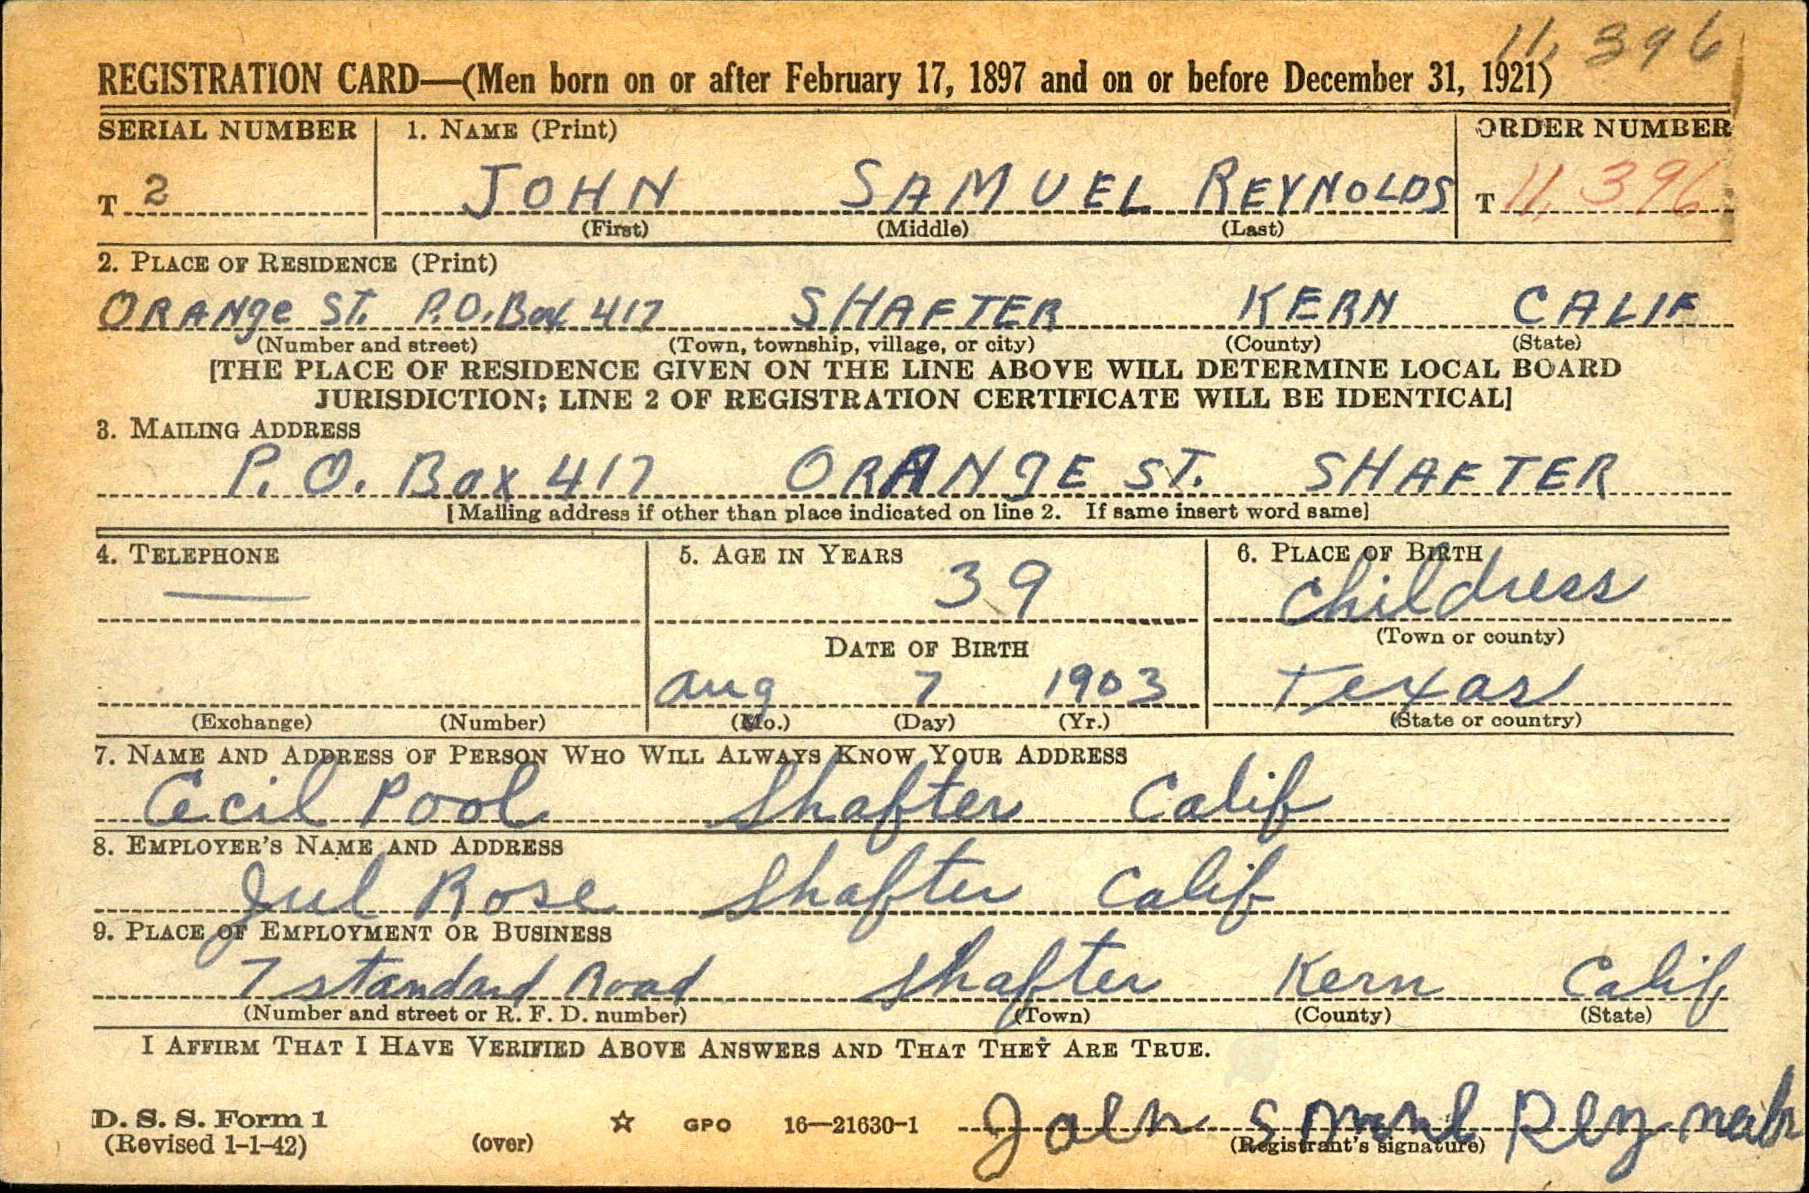 11,396
REGISTRATION CARD—(Men born on or after February 17, 1897 and on or before December 31, 1921)
SERIAL NUMBER 1. NAME (Print) ORDER NUMBER
T 2 JOHN SAMUEL REYNOLDS T 11,396
(First) (Middle) (Last)
2. PLACE OF RESIDENCE (Print)
ORANge ST. P.O. Box 417 SHAFTER KERN CALIF
(Number and street) (Town, township, village, or city) (County) (State)
[THE PLACE OF RESIDENCE GIVEN ON THE LINE ABOVE WILL DETERMINE LOCAL BOARD
JURISDICTION; LINE 2 OF REGISTRATION CERTIFICATE WILL BE IDENTICAL]
3. MAILING ADDRESS
P. O. Box 417 ORANgE ST. SHAFTER
[Mailing address if other than place indicated on line 2. If same insert word same]
4. TELEPHONE 5. AGE IN YEARS 6. PLACE OF BIRTH
— 39 Childress
(Town or county)
DATE OF BIRTH
Aug 7 1903 Texas
(Exchange) (Number) (Mo.) (Day) (Yr.) (State or country)
7. NAME AND ADDRESS OF PERSON WHO WILL ALWAYS KNOW YOUR ADDRESS
Cecil Pool Shafter Calif
8. EMPLOYER'S NAME AND ADDRESS
Rose Shafter Calif
9. PLACE OF EMPLOYMENT OR BUSINESS
7 standard Road Shafter Kern Calif
(Number and street or R. F. D. number) (Town) (County) (State)
I AFFIRM THAT I HAVE VERIFIED ABOVE ANSWERS AND THAT THEY ARE TRUE.
D. S. S. Form 1
(Revised 1-1-42) (over) ☆ GPO 16—21630-1 John
(Registrant's signature)